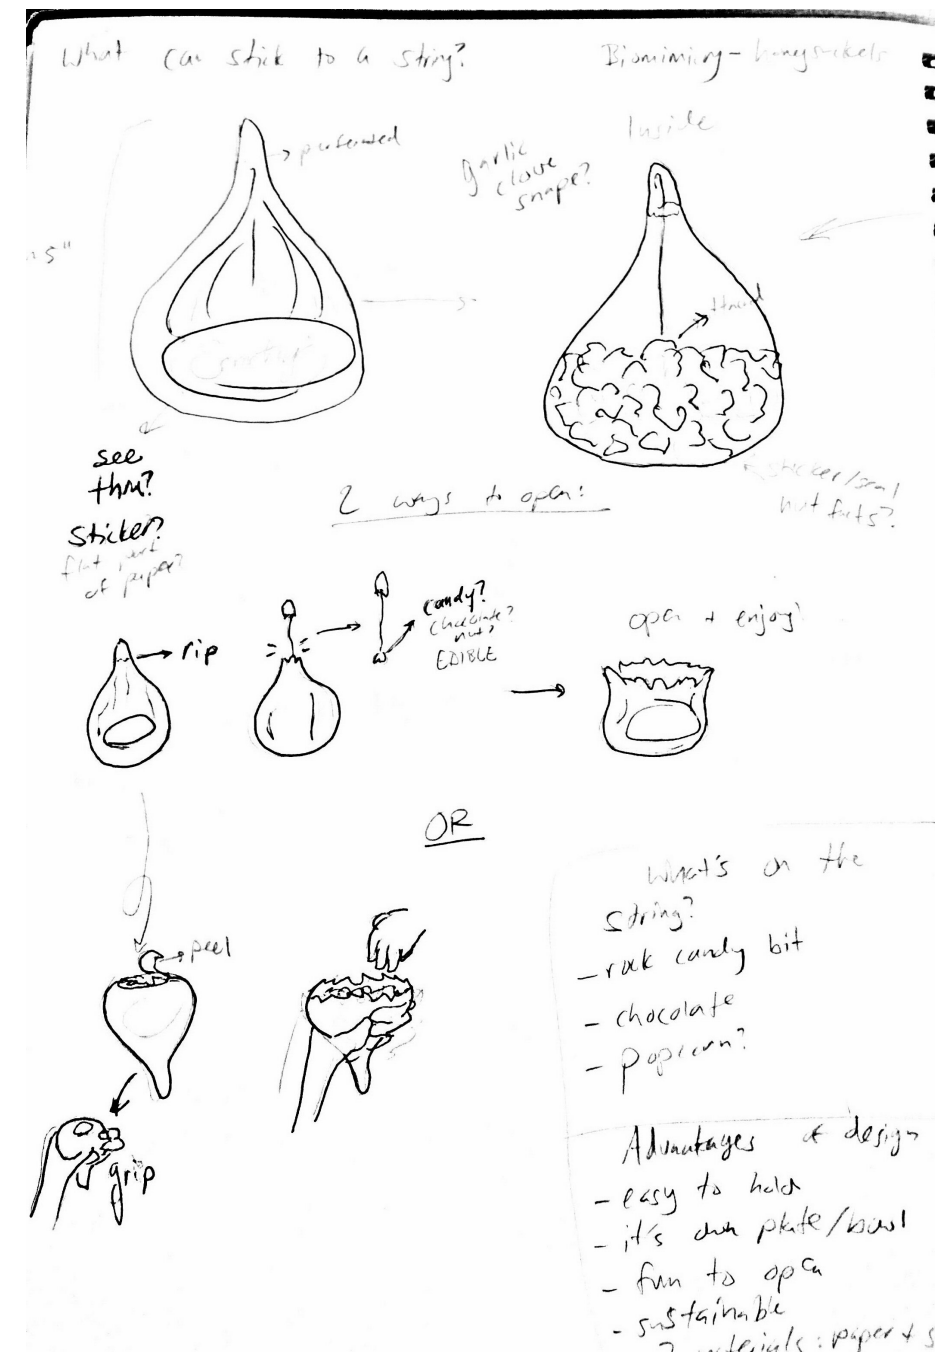 What can stick to a string?
Biomimicry - honeysuckels
perforated
garlic
clove
snape?
Inside
5"
see
thru?
Sticker?
flat part
of paper?
sticker/seal
nut facts?
2 ways to open:
rip
candy?
chocolate?
nut?
EDIBLE
open + enjoy!
OR
peel
grip
What's on the
string?
- rock candy bit
- chocolate
- popcorn?
Advantages of design
- easy to hold
- it's own plate/bowl
- fun to open
- sustainable
materials: paper +